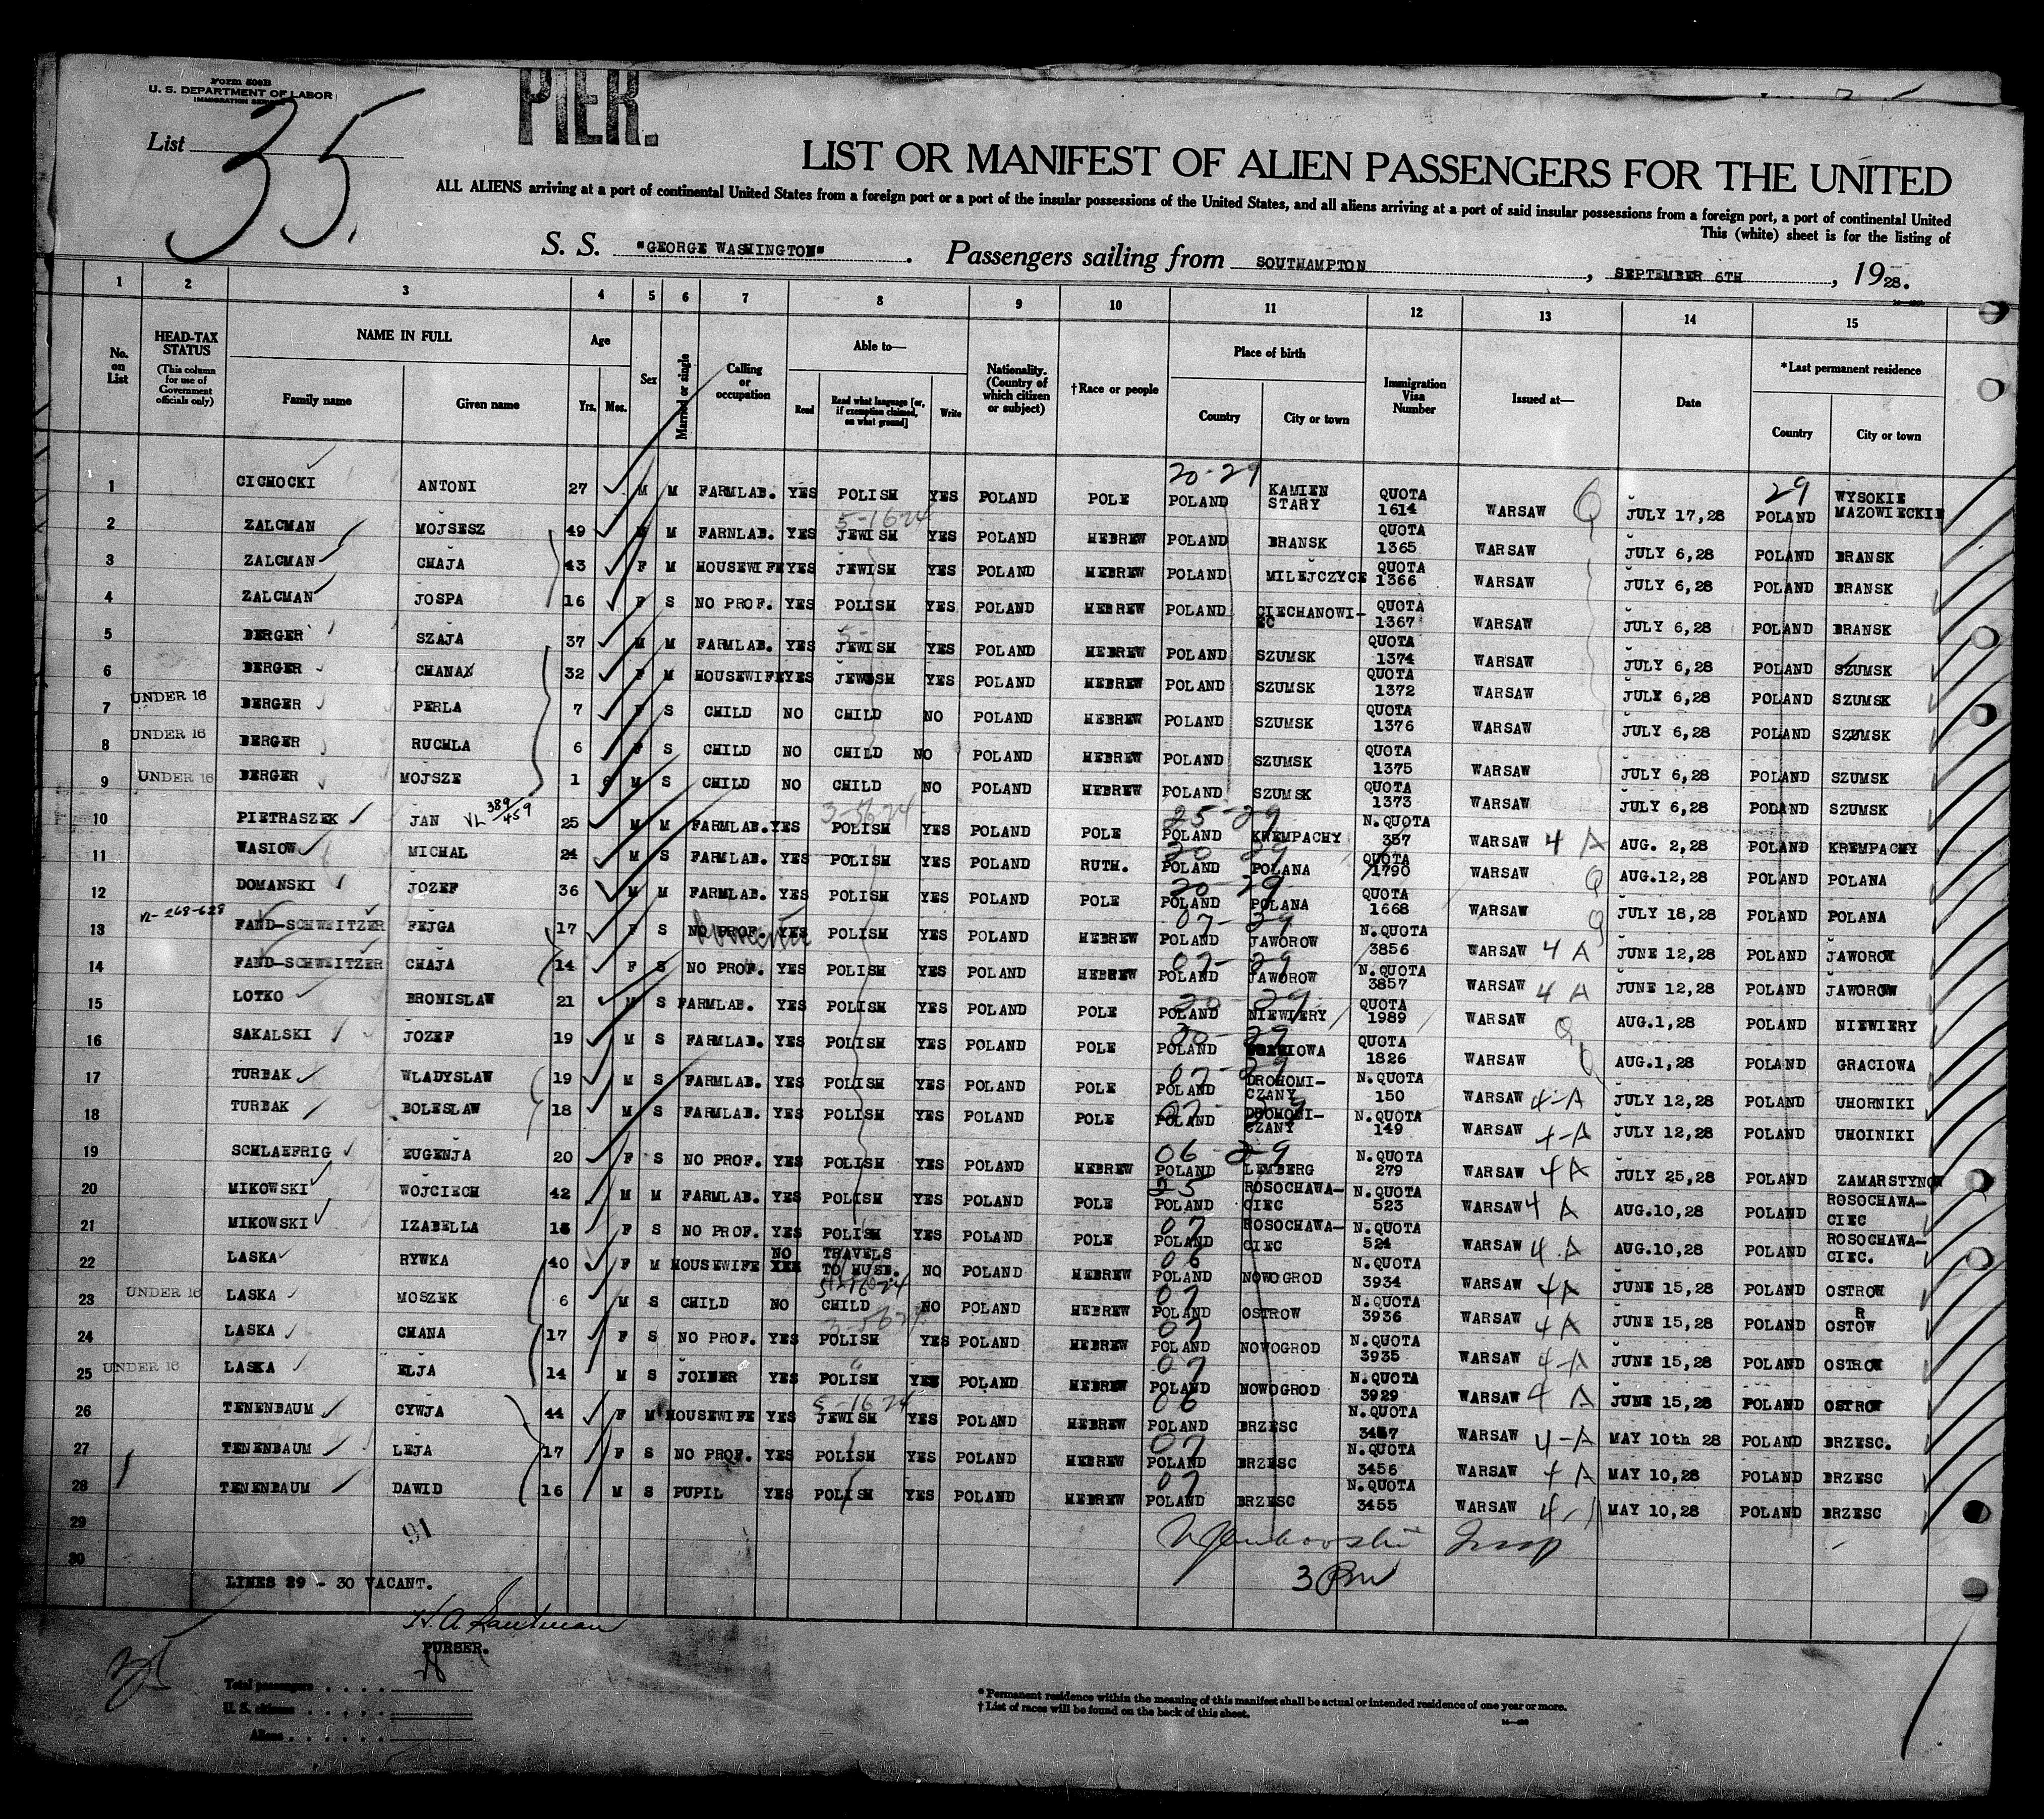 Form 500B
U. S. DEPARTMENT OF LABOR
IMMIGRATION SERVICE
PIER.
List 35.
LIST OR MANIFEST OF ALIEN PASSENGERS FOR THE UNITED
ALL ALIENS arriving at a port of continental United States from a foreign port or a port of the insular possessions of the United States, and all aliens arriving at a port of said insular possessions from a foreign port, a port of continental United
This (white) sheet is for the listing of
S. S. "GEORGE WASHINGTON". Passengers sailing from SOUTHAMPTON, SEPTEMBER 6TH, 1928.
1 2 3 4 5 6 7 8 9 10 11 12 13 14 15
No. on List HEAD-TAX STATUS (This column for use of Government officials only) NAME IN FULL Family name Given name Age Yrs. Mos. Sex Married or single Calling or occupation Able to— Read Read what language [or, if exemption claimed, on what ground] Write Nationality. (Country of which citizen or subject) †Race or people Place of birth Country City or town Immigration Visa Number Issued at— Date *Last permanent residence Country City or town
1 CICHOCKI ANTONI 27 M M FARMLAB. YES POLISH YES POLAND POLE 20-29 POLAND KAMIEN STARY QUOTA 1614 WARSAW Q JULY 17,28 29 POLAND WYSOKIE MAZOWIECKIE
2 ZALCMAN MOJSESZ 49 M M FARNLAB. YES 5-1624 JEWISH YES POLAND HEBREW POLAND BRANSK QUOTA 1365 WARSAW JULY 6,28 POLAND BRANSK
3 ZALCMAN CHAJA 43 F M HOUSEWIFE YES JEWISH YES POLAND HEBREW POLAND MILEJCZYCE QUOTA 1366 WARSAW JULY 6,28 POLAND BRANSK
4 ZALCMAN JOSPA 16 F S NO PROF. YES POLISH YES POLAND HEBREW POLAND CIECHANOWI-EC QUOTA 1367 WARSAW JULY 6,28 POLAND BRANSK
5 BERGER SZAJA 37 M M FARMLAB. YES JEWISH YES POLAND HEBREW POLAND SZUMSK QUOTA 1374 WARSAW JULY 6,28 POLAND SZUMSK
6 BERGER CHANA 32 F M HOUSEWIFE YES JEWOSH YES POLAND HEBREW POLAND SZUMSK QUOTA 1372 WARSAW JULY 6,28 POLAND SZUMSK
7 UNDER 16 BERGER PERLA 7 F S CHILD NO CHILD NO POLAND HEBREW POLAND SZUMSK QUOTA 1376 WARSAW JULY 6,28 POLAND SZUMSK
8 UNDER 16 BERGER RUCHLA 6 F S CHILD NO CHILD NO POLAND HEBREW POLAND SZUMSK QUOTA 1375 WARSAW JULY 6,28 POLAND SZUMSK
9 UNDER 16 BERGER MOJSZE 1 6 M S CHILD NO CHILD NO POLAND HEBREW POLAND SZUMSK QUOTA 1373 WARSAW JULY 6,28 POLAND SZUMSK
10 PIETRASZEK JAN VL 389/459 25 M M FARMLAB. YES POLISH YES POLAND POLE 25-29 POLAND KREMPACHY N. QUOTA 357 WARSAW 4 A AUG. 2,28 POLAND KREMPACHY
11 WASIOW MICHAL 24 M S FARMLAB. YES POLISH YES POLAND RUTH. 30 29 POLAND POLANA QUOTA 1790 WARSAW Q AUG.12,28 POLAND POLANA
12 DOMANSKI JOZEF 36 M M FARMLAB. YES POLISH YES POLAND POLE 20-29 POLAND POLANA QUOTA 1668 WARSAW Q JULY 18,28 POLAND POLANA
13 VL-268-628 FAND-SCHWEITZER FEJGA 17 F S NO PROF. domestic YES POLISH YES POLAND HEBREW 07-29 POLAND JAWOROW N.QUOTA 3856 WARSAW 4 A JUNE 12,28 POLAND JAWOROW
14 FAND-SCHWEITZER CHAJA 14 F S NO PROF. YES POLISH YES POLAND HEBREW 07-29 POLAND JAWOROW N.QUOTA 3857 WARSAW 4 A JUNE 12,28 POLAND JAWOROW
15 LOTKO BRONISLAW 21 M S FARMLAB. YES POLISH YES POLAND POLE 20-29 POLAND NIEWIERY QUOTA 1989 WARSAW Q AUG.1,28 POLAND NIEWIERY
16 SAKALSKI JOZEF 19 M S FARMLAB. YES POLISH YES POLAND POLE 30-29 POLAND QUOTA 1826 WARSAW Q AUG.1,28 POLAND GRACIOWA
17 TURBAK WLADYSLAW 19 M S FARMLAB. YES POLISH YES POLAND POLE 07-29 POLAND DROHOMI-CZANY N.QUOTA 150 WARSAW 4-A JULY 12,28 POLAND UHORNIKI
18 TURBAK BOLESLAW 18 M S FARMLAB. YES POLISH YES POLAND POLE 07-29 POLAND DROHOMI-CZANY N.QUOTA 149 WARSAW 4-A JULY 12,28 POLAND UHOINIKI
19 SCHLAEFRIG EUGENJA 20 F S NO PROF. YES POLISH YES POLAND HEBREW 06-29 POLAND LEMBERG N.QUOTA 279 WARSAW 4A JULY 25,28 POLAND ZAMARSTYNOW
20 MIKOWSKI WOJCIECH 42 M M FARMLAB. YES POLISH YES POLAND POLE 25 POLAND ROSOCHAWA-CIEC N.QUOTA 523 WARSAW 4 A AUG.10,28 POLAND ROSOCHAWA-CIEC
21 MIKOWSKI IZABELLA 15 F S NO PROF. YES POLISH YES POLAND POLE 07 POLAND ROSOCHAWA-CIEC N.QUOTA 524 WARSAW 4 A AUG.10,28 POLAND ROSOCHAWA-CIEC.
22 LASKA RYWKA 40 F M HOUSEWIFE NO TRAVELS TO HUSB. NO POLAND HEBREW 06 POLAND NOWOGROD N.QUOTA 3934 WARSAW 4A JUNE 15,28 POLAND OSTROW
23 UNDER 16 LASKA MOSZEK 6 M S CHILD NO CHILD NO POLAND HEBREW 07 POLAND OSTROW N.QUOTA 3936 WARSAW 4A JUNE 15,28 POLAND OSTROW
24 LASKA CHANA 17 F S NO PROF. YES POLISH YES POLAND HEBREW 07 POLAND NOWOGROD N.QUOTA 3935 WARSAW 4-A JUNE 15,28 POLAND OSTROW
25 UNDER 16 LASKA ELJA 14 M S JOINER YES POLISH YES POLAND HEBREW 07 POLAND NOWOGROD N.QUOTA 3929 WARSAW 4 A JUNE 15,28 POLAND OSTROW
26 TENENBAUM CYWJA 44 F M HOUSEWIFE YES 5-1624 JEWISH YES POLAND HEBREW 06 POLAND BRZESC N.QUOTA 3457 WARSAW 4-A MAY 10th 28 POLAND BRZESC.
27 TENENBAUM LEJA 17 F S NO PROF. YES POLISH YES POLAND HEBREW 07 POLAND BRZESC N.QUOTA 3456 WARSAW 4 A MAY 10,28 POLAND BRZESC
28 TENENBAUM DAWID 16 M S PUPIL YES POLISH YES POLAND HEBREW 07 POLAND BRZESC N.QUOTA 3455 WARSAW 4-A MAY 10,28 POLAND BRZESC
29 91
30
3 PM
LINES 29 - 30 VACANT.
PURSER.
Total passengers
U. S. citizens
Aliens
* Permanent residence within the meaning of this manifest shall be actual or intended residence of one year or more.
† List of races will be found on the back of this sheet.